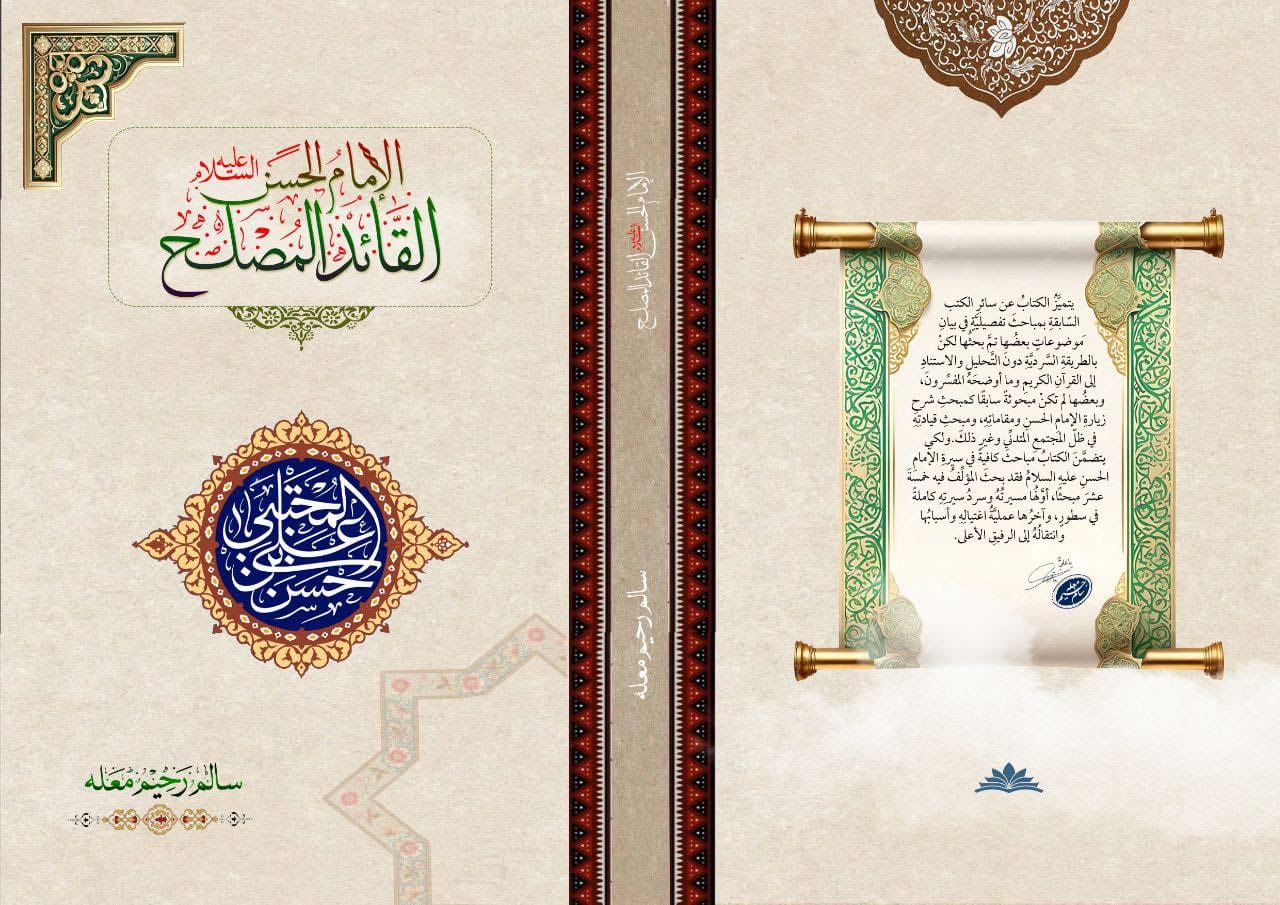 الإمامُ الحَسَن عليه السلام
القَائدُ المُصْلح
المجتبى
علي
بن
حسن
سالم رَحِيم مَعَله
الإمام الحسن عليه السلام القائد المصلح
سالم رحيم معله
يتميَّزُ الكتابُ عن سائرِ الكتب
السّابقةِ بمباحثَ تفصيليَّةٍ في بيانِ
موضوعاتٍ بعضُها تمَّ بحثُها لكنْ
بالطريقةِ السَّرديَّةِ دونَ التَّحليلِ والاستنادِ
إلى القرآنِ الكريمِ وما أوضحَهُ المفسِّرونَ،
وبعضُها لم تكنْ مبحوثةً سابقًا كمبحثِ شرحِ
زيارةِ الإمامِ الحسنِ ومقاماتِهِ، ومبحثِ قيادتِهِ
في ظلّ المجتمعِ المتدنِّي وغيرِ ذلكَ.ولكي
يتضمَّنَ الكتابُ مباحثَ كافيةً في سيرةِ الإمامِ
الحسنِ عليهِ السلامُ فقد بحثَ المؤلِّفُ فيه خمسةَ
عشرَ مبحثًا، أوَّلُها مسيرتُهُ وسردُ سيرتِهِ كاملةً
في سطورٍ، وآخرُها عمليَّةُ اغتيالِهِ وأسبابُها
وانتقالُهُ إلى الرفيقِ الأعلى.
يا عليُّ